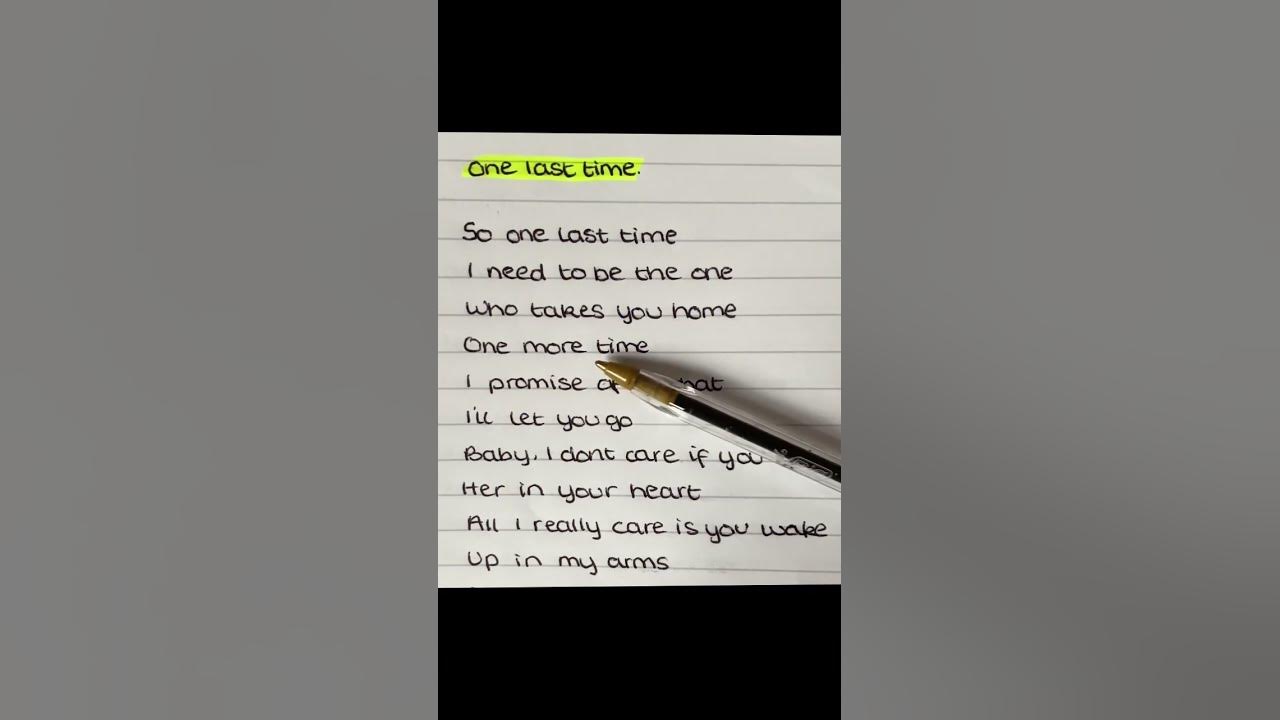 One last time.
So one last time
I need to be the one
Who takes you home
One more time
I promise
I'll let you go
Baby, I dont care if you
Her in your heart
All I really care is you wake
Up in my arms